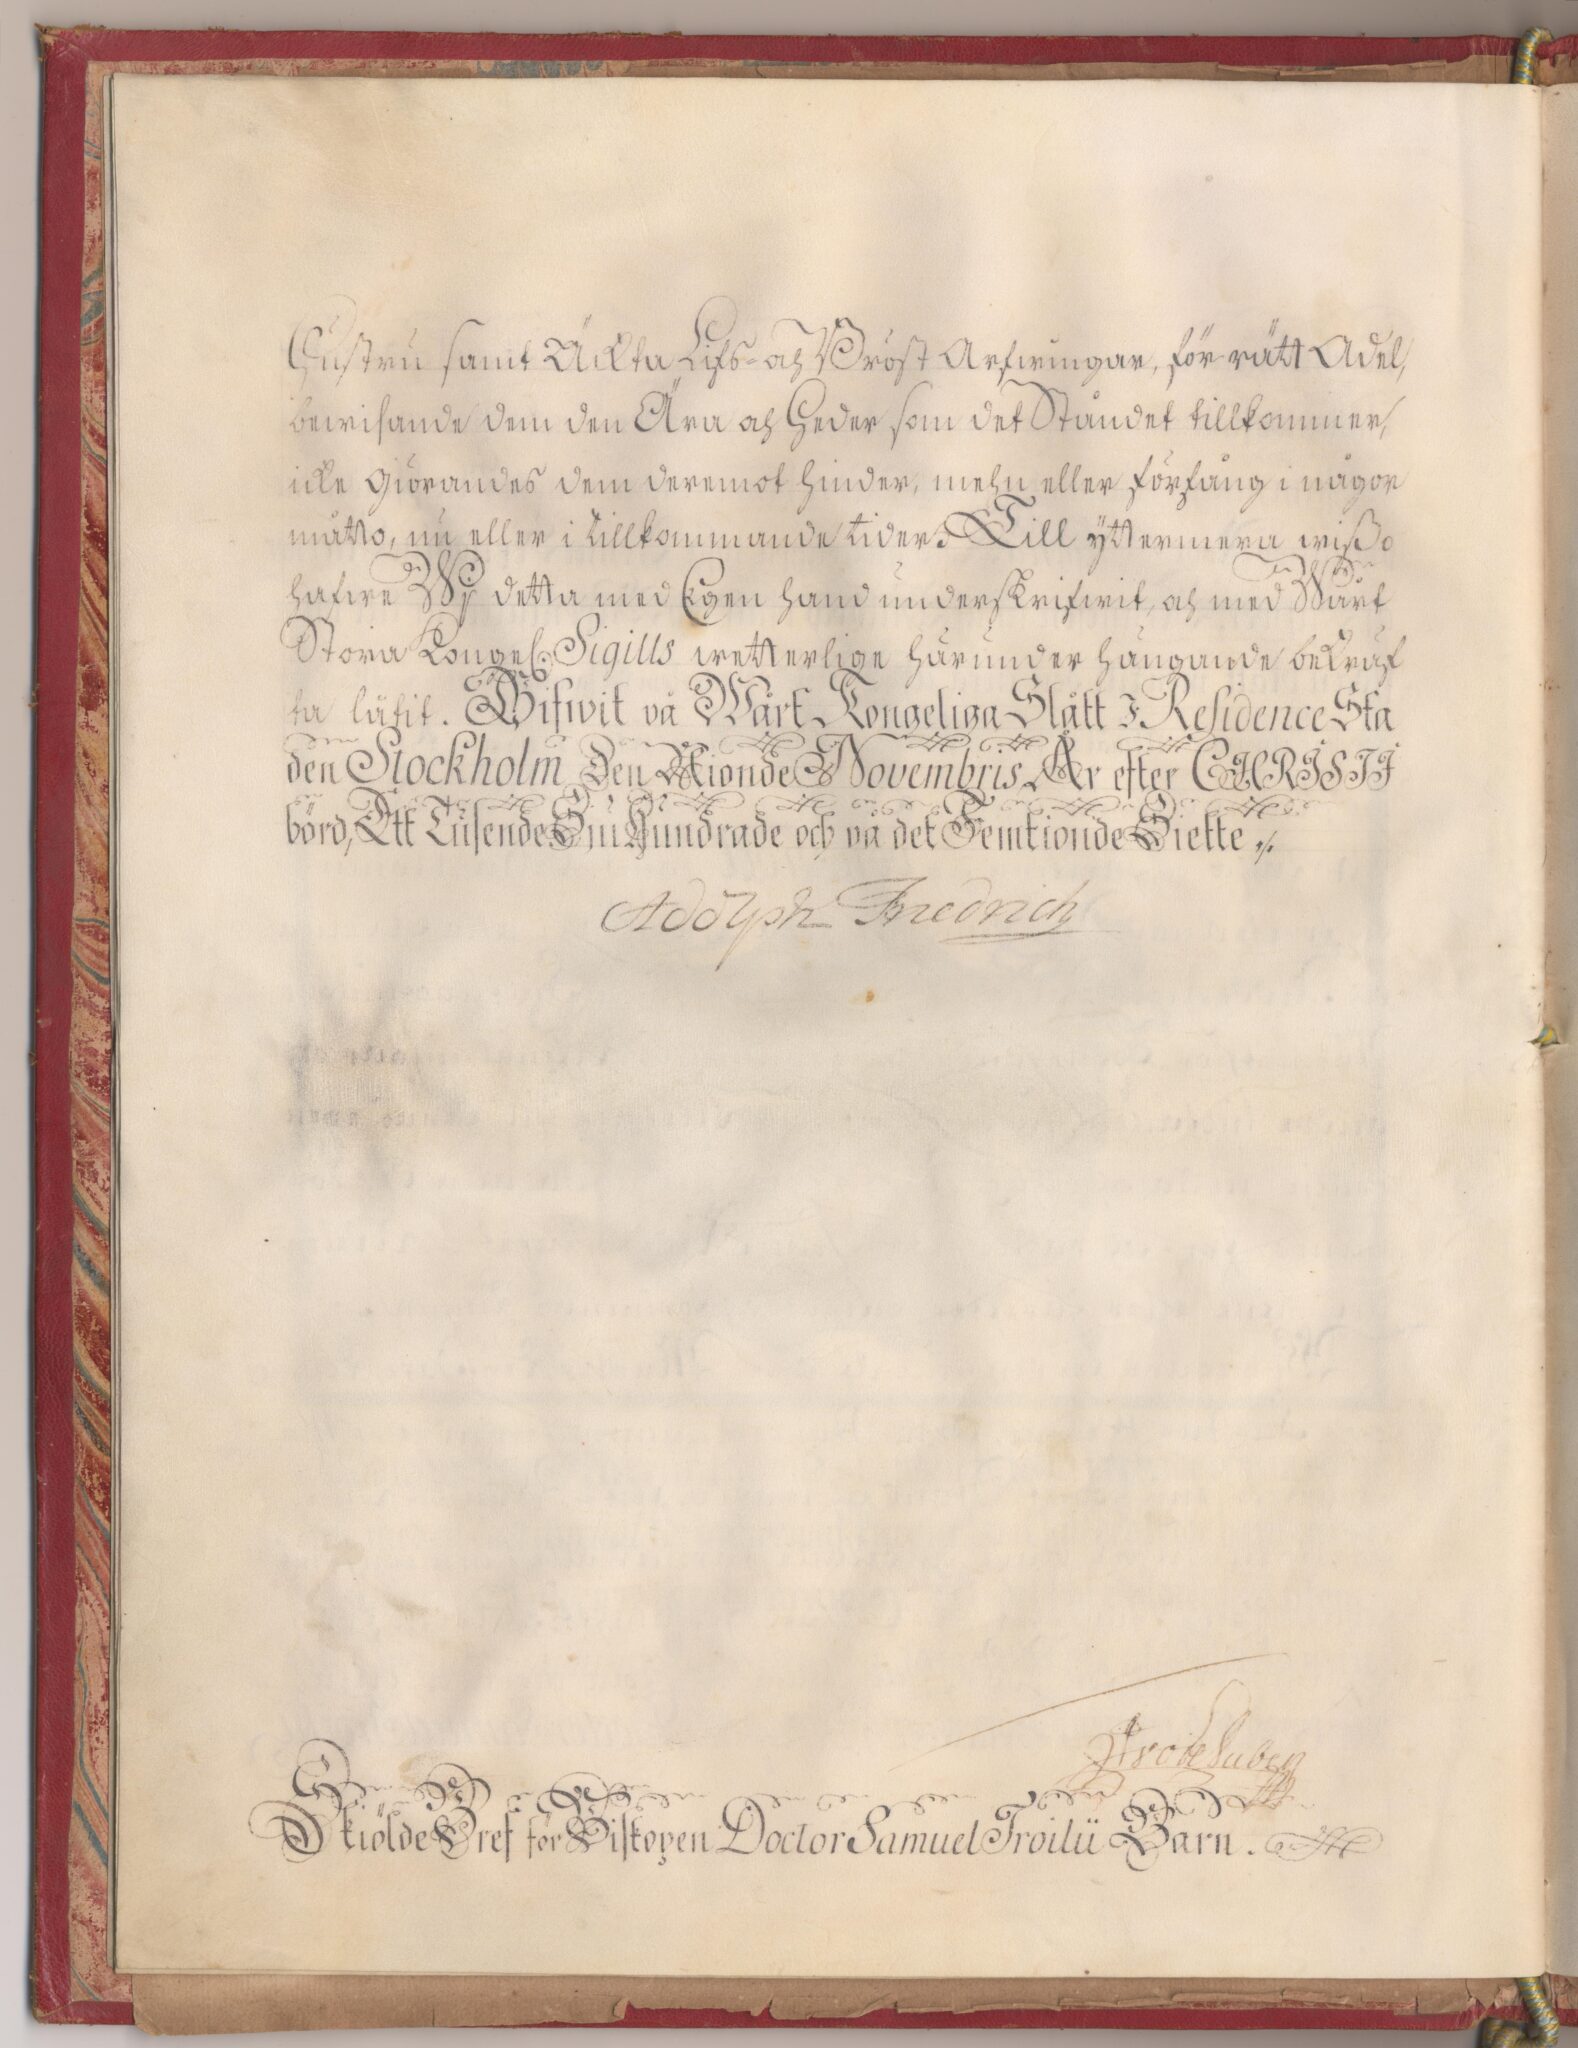 Hustru samt Äckta Lifs- och Bröst Arfwingar, för rätt Adel,
bewisande dem den Ära och Heder som det Ståndet tillkommer,
icke giörandes dem deremot hinder, mehn eller förfång i någor
måtto, nu eller i tillkommande tider. Till yttermera wißo
hafwe Wij detta med Egen hand underskrifwit, och med Wårt
Stora Kongel. Sigills wetterlige härunder hängande bekräf
ta låtit. Gifwit på Wårt Kongeliga Slått I Residence Sta
den Stockholm Den Nionde Novembris, År efter CHRISTI
börd, Ett Tusende Sju Hundrade och på det Femtionde Siette ./.
Adolph Friedrich
Skiölde Bref för Biskopen Doctor Samuel Troilii Barn.